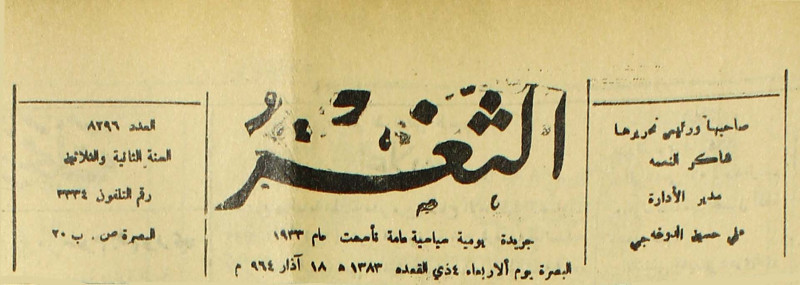 صاحبها ورئيس تحريرها
شاكر النعمه
مدير الأدارة
علي حسين
الثغر
جريدة يومية سياسية عامة تأسست عام ١٩٣٣
البصرة يوم ألاربعاء ٤ ذي القعده ١٣٨٣ ه ١٨ آذار ٩٦٤ م
العدد ٨٢٩٦
السنة الثانية والثلاثين
رقم التلفون ٣٣٣٤
البصرة ص . ب ٢٠